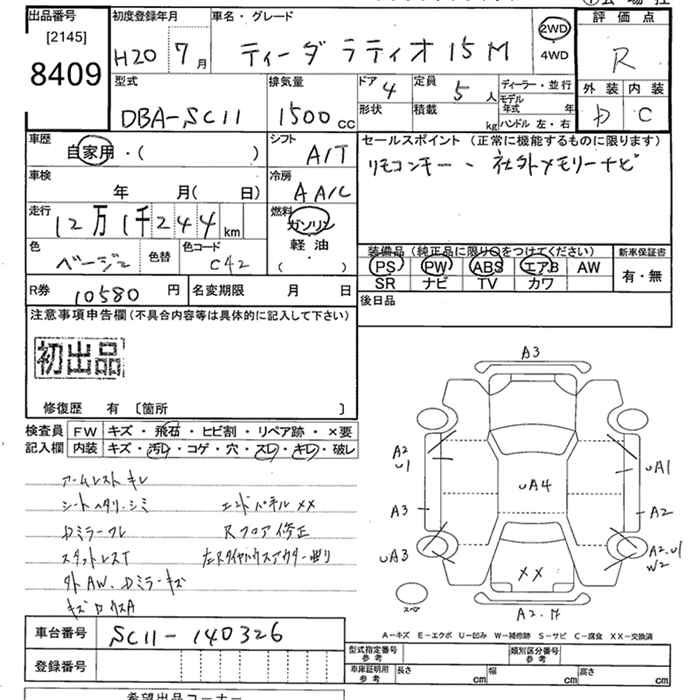 出品番号
[2145]
8409
初度登録年月
H20 7月
車名・グレード
ティーダ ラティオ 15M
2WD
4WD
評価点
R
外装 内装
D C
型式
DBA-SC11
排気量
1500cc
ドア 4
形状
定員 5人
積載 kg
ディーラー・並行
モデル年式 年
ハンドル 左・右
車歴
自家用・( )
シフト
A/T
セールスポイント (正常に機能するものに限ります)
リモコンキー、社外メモリーナビ
車検
年 月( 日)
冷房
AA/C
走行
12万1千244km
燃料
ガソリン
軽油
( )
色
ベージュ
色替
色コード
C42
装備品(純正品に限り○をつけてください)
PS PW ABS エアB AW
SR ナビ TV カワ
新車保証書
有・無
R券 10580円
名変期限 月 日
後日品
注意事項申告欄(不具合内容等は具体的に記入して下さい)
初出品
修復歴 有 〔箇所 〕
検査員記入欄
FW キズ・飛石・ヒビ割・リペア跡・×要
内装 キズ・汚レ・コゲ・穴・スレ・キレ・破レ
アームレストキレ
シートヘタリ・シミ
エンドパネルXX
Dミラーワレ
Rフロア修正
スタットレスT
左Rタイヤハウスアウター曲り
外AW、Dミラーキズ
A3
A2
U1
UA1
UA4
A3
A2
UA3
A2.U1
W2
XX
スペア
A2.
A-キズ E-エクボ U-凹み W-補修跡 S-サビ C-腐食 XX-交換済
車台番号
SC11-140326
登録番号
型式指定番号
参考
類別区分番号
参考
車庫証明用
参考
長さ cm
幅 cm
高さ cm
希望出品コーナー